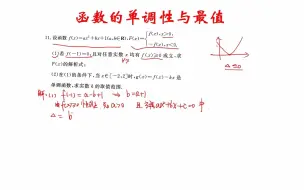 函数的单调性与最值
11. 设函数 f(x)=ax²+bx+1(a,b∈R), F(x)={f(x),x>0,
-f(x),x<0.
(1)若 f(-1)=0,且对任意实数 x 均有 f(x)≥0 成立,求
F(x)的解析式;
(2)在(1)的条件下,当 x∈[-2,2]时,g(x)=f(x)-kx 是
单调函数,求实数 k 的取值范围.
△≤0
解: (1) f(-1)=a-b+1 → b=a+1
a>0 且 ax²+bx+c=0 中
△= b